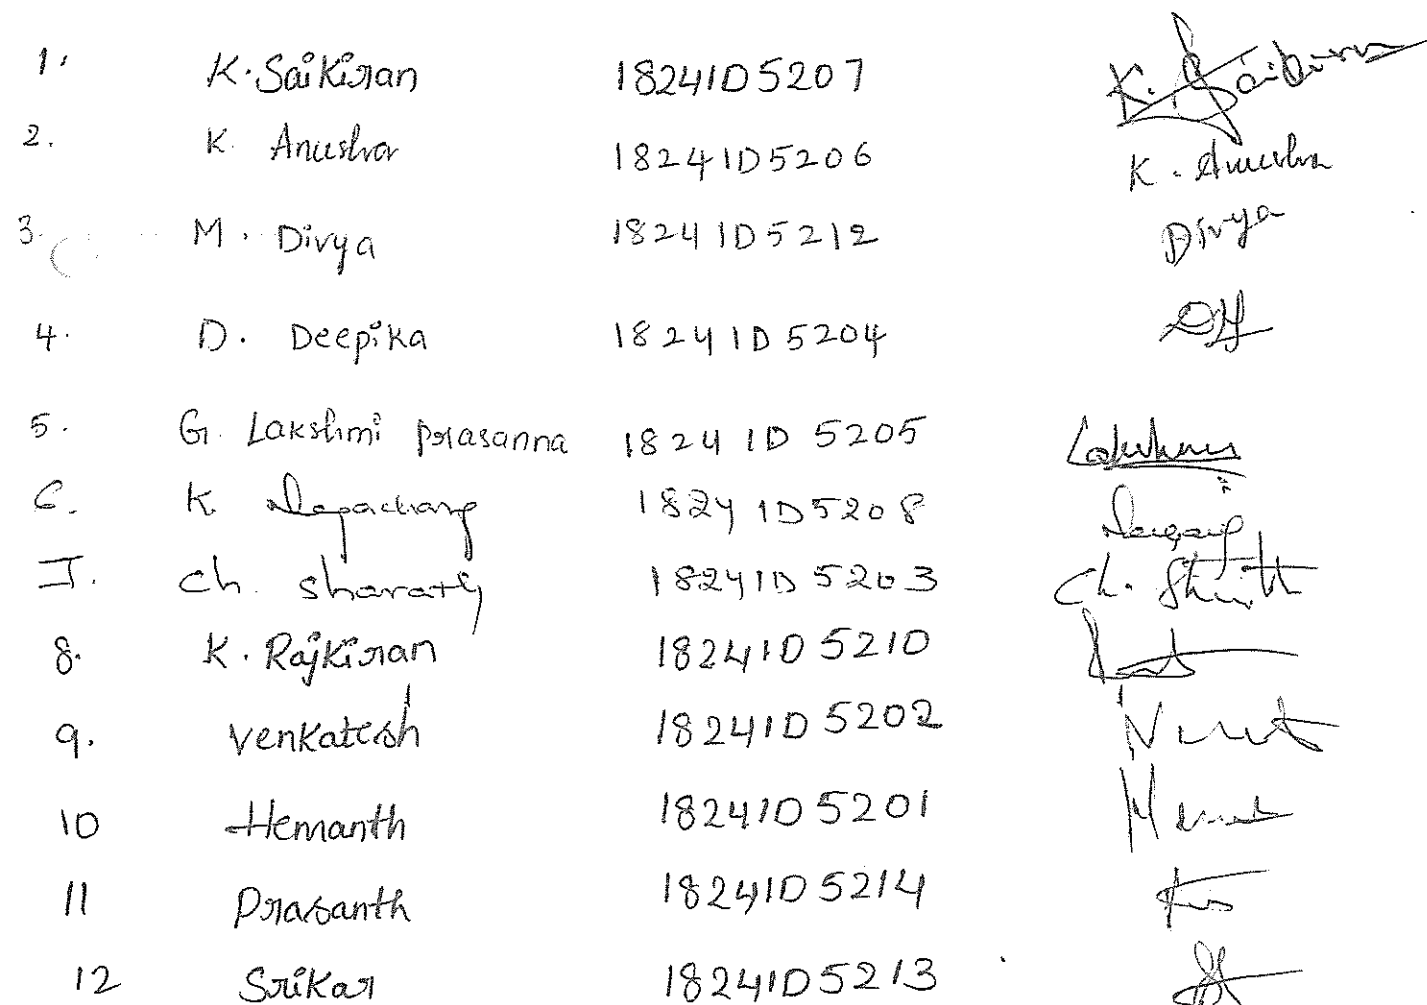 1. K. Saikiran 18241D5207 K. Saikiran
2. K. Anusha 18241D5206 K. Anusha
3. M. Divya 18241D5212 Divya
4. D. Deepika 18241D5204
5. G. Lakshmi prasanna 18241D5205
6. K 18241D5208
7. Ch. Sharath 18241D5203 Ch.
8. K. Rajkiran 18241D5210
9. Venkatesh 18241D5202
10 Hemanth 18241D5201
11 Prasanth 18241D5214
12 Srikar 18241D5213